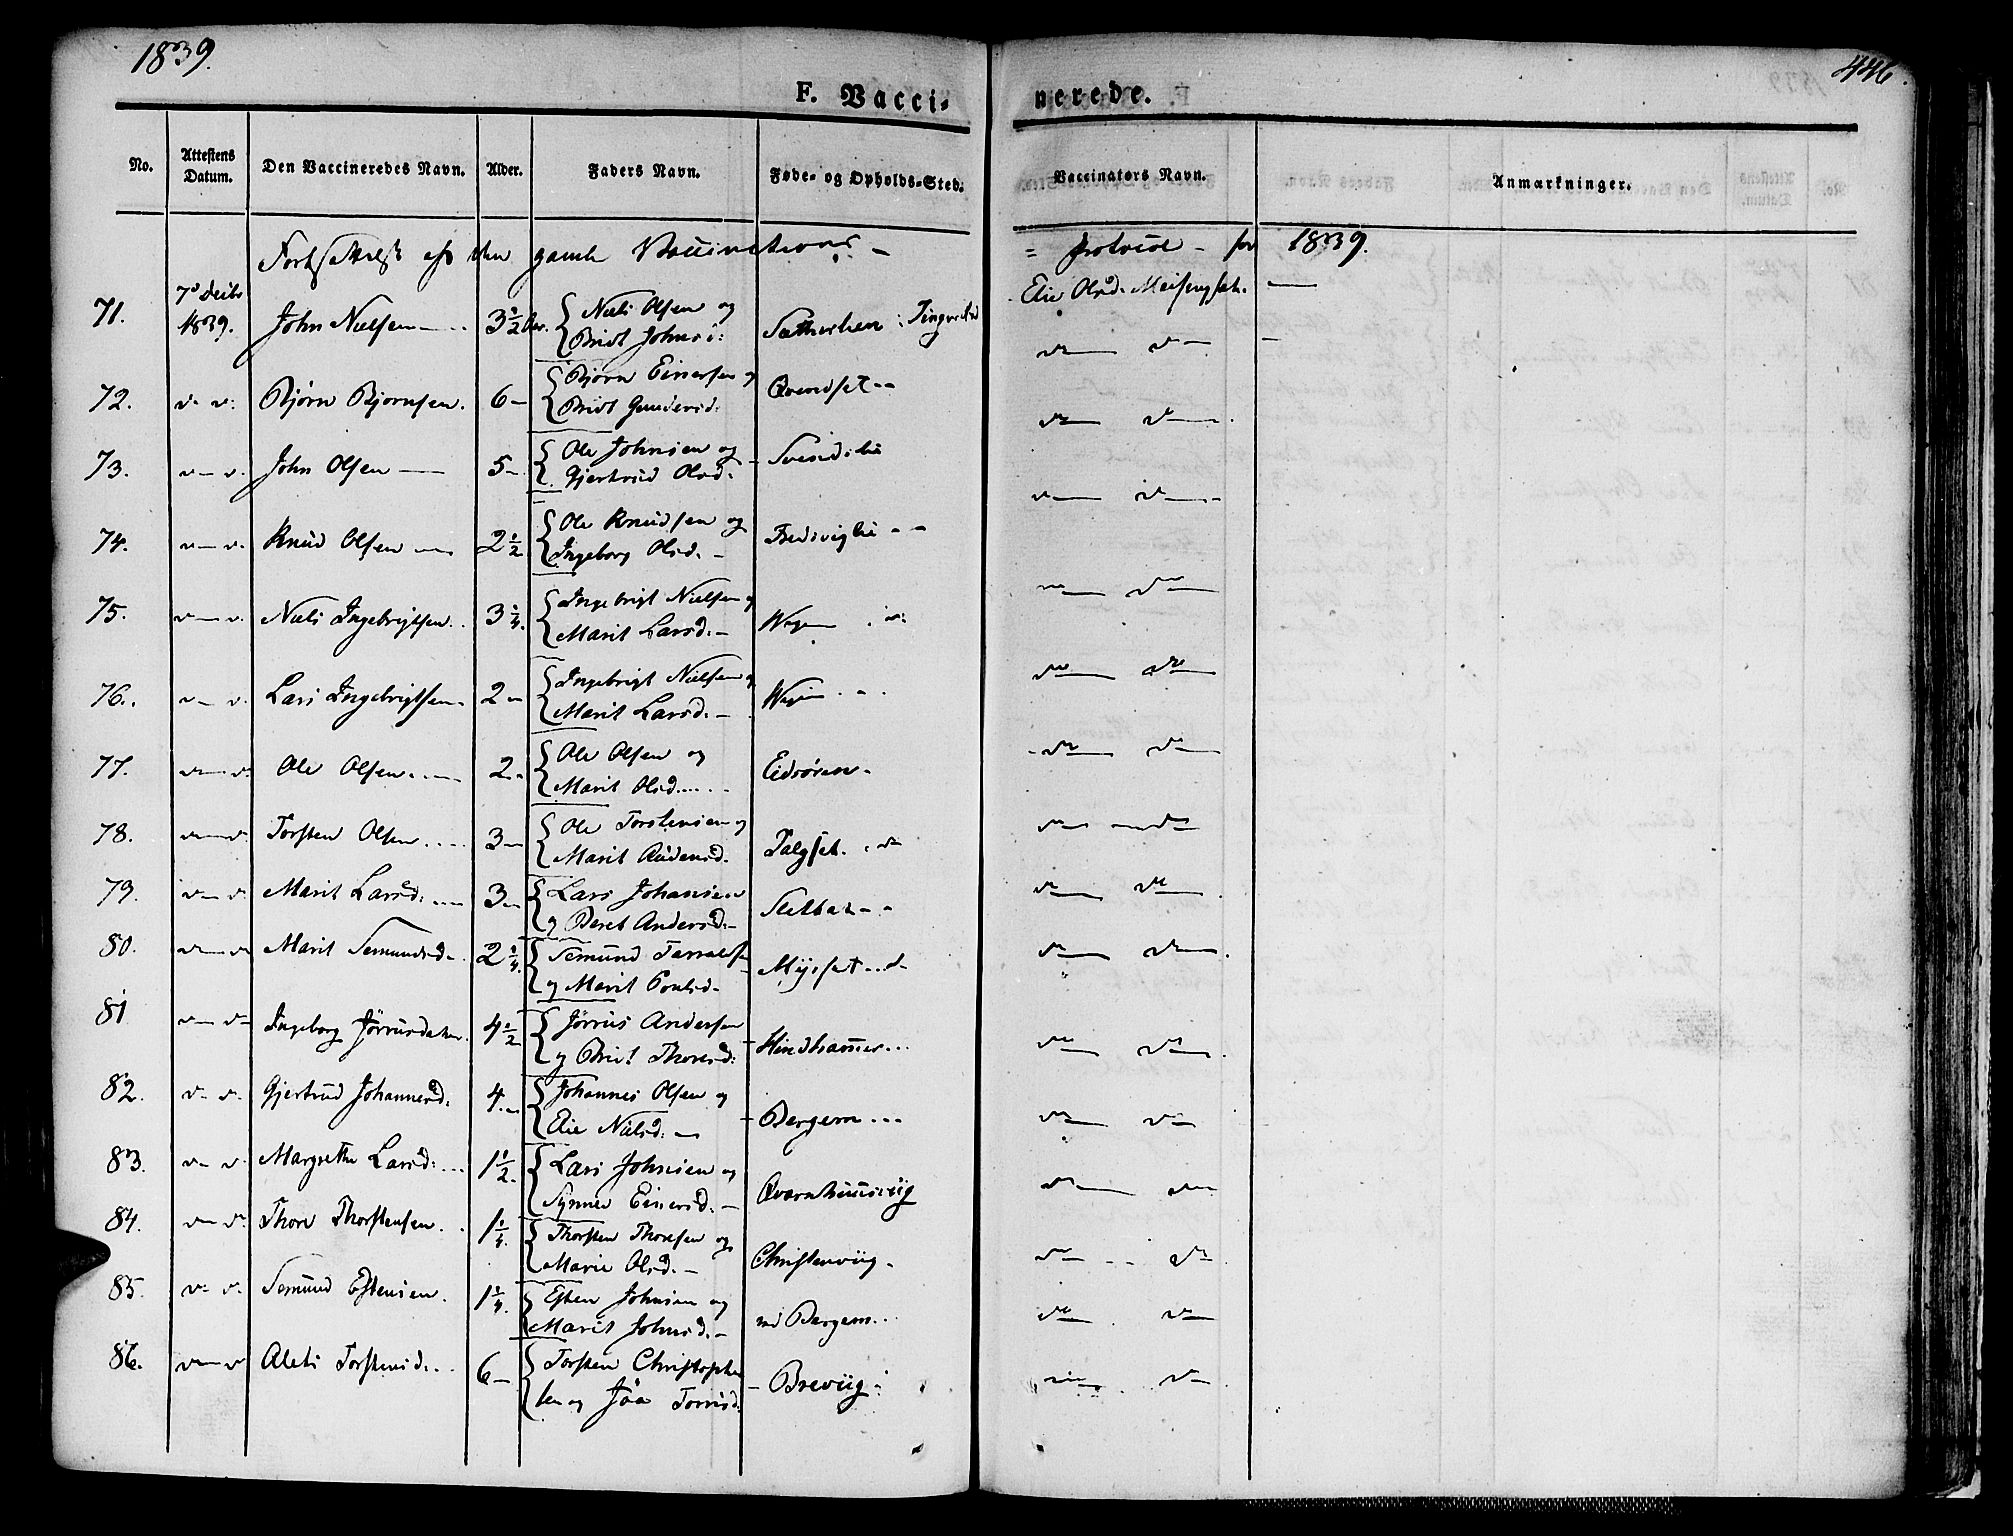 1839.
446.
F. Vacci-
nerede.
No. Attestens Datum. Den Vaccineredes Navn. Alder. Faders Navn. Føde- og Opholds-Sted. Vaccinators Navn. Anmærkninger.
Fortsættelse af den gamle Vaccinations - protocol - for 1839.
71. 7de Decbr 1839. John Nielsen 3 1/2 Aar. Niels Olsen og Brit Johnsd: Tingvold Elie Olsd. Meisingset.
72. Bjørn Bjørnsen. 6 Bjørn Einersen og Brit Gundersd: Qvendset
73. John Olsen 5 Ole Johnsen og Gjertrud Olsd: Svendslie
74. Knud Olsen 2 1/2 Ole Knudsen og Ingeborg Olsd.
75. Niels Ingebrigtsen. 3 1/4. Ingebrigt Nielsen og Marit Larsd. Wegen
76. Lars Ingebrigtsen 2 Ingebrigt Nielsen og Marit Larsd. Wegen
77. Ole Olsen 2 Ole Olsen og Marit Olsd. Eidsøren
78. Torsten Olsen 3 Ole Torstensen og Marit Talgset.
79. Marit Larsd. 3 Lars Johansen og Beret Andersd. Sletbak
80. Marit Semundsd. 2 1/4. Semund og Marit Poulsd. Myrset
81 Ingeborg 4 1/2 Jørrus Andersen og Brit Thoresd: Hindhammer
82. Gjertrud Johannesd. 4. Johannes Olsen og Elie Nielsd. Bergem
83. Margrethe Larsd. 1 1/2. Lars Johnsen og Synnev Einersd. Qværnhuusviig
84. Thore Thorstensen. 1 1/4. Thorsten Thoresen og Marie Olsd. Christenviig
85. Semund Estensen. 1 1/4. Esten Johnsen og Marit Johnsd. Bergem
86. Alets Torstensd. 6 Torsten Christophersen og Jøa Breviig